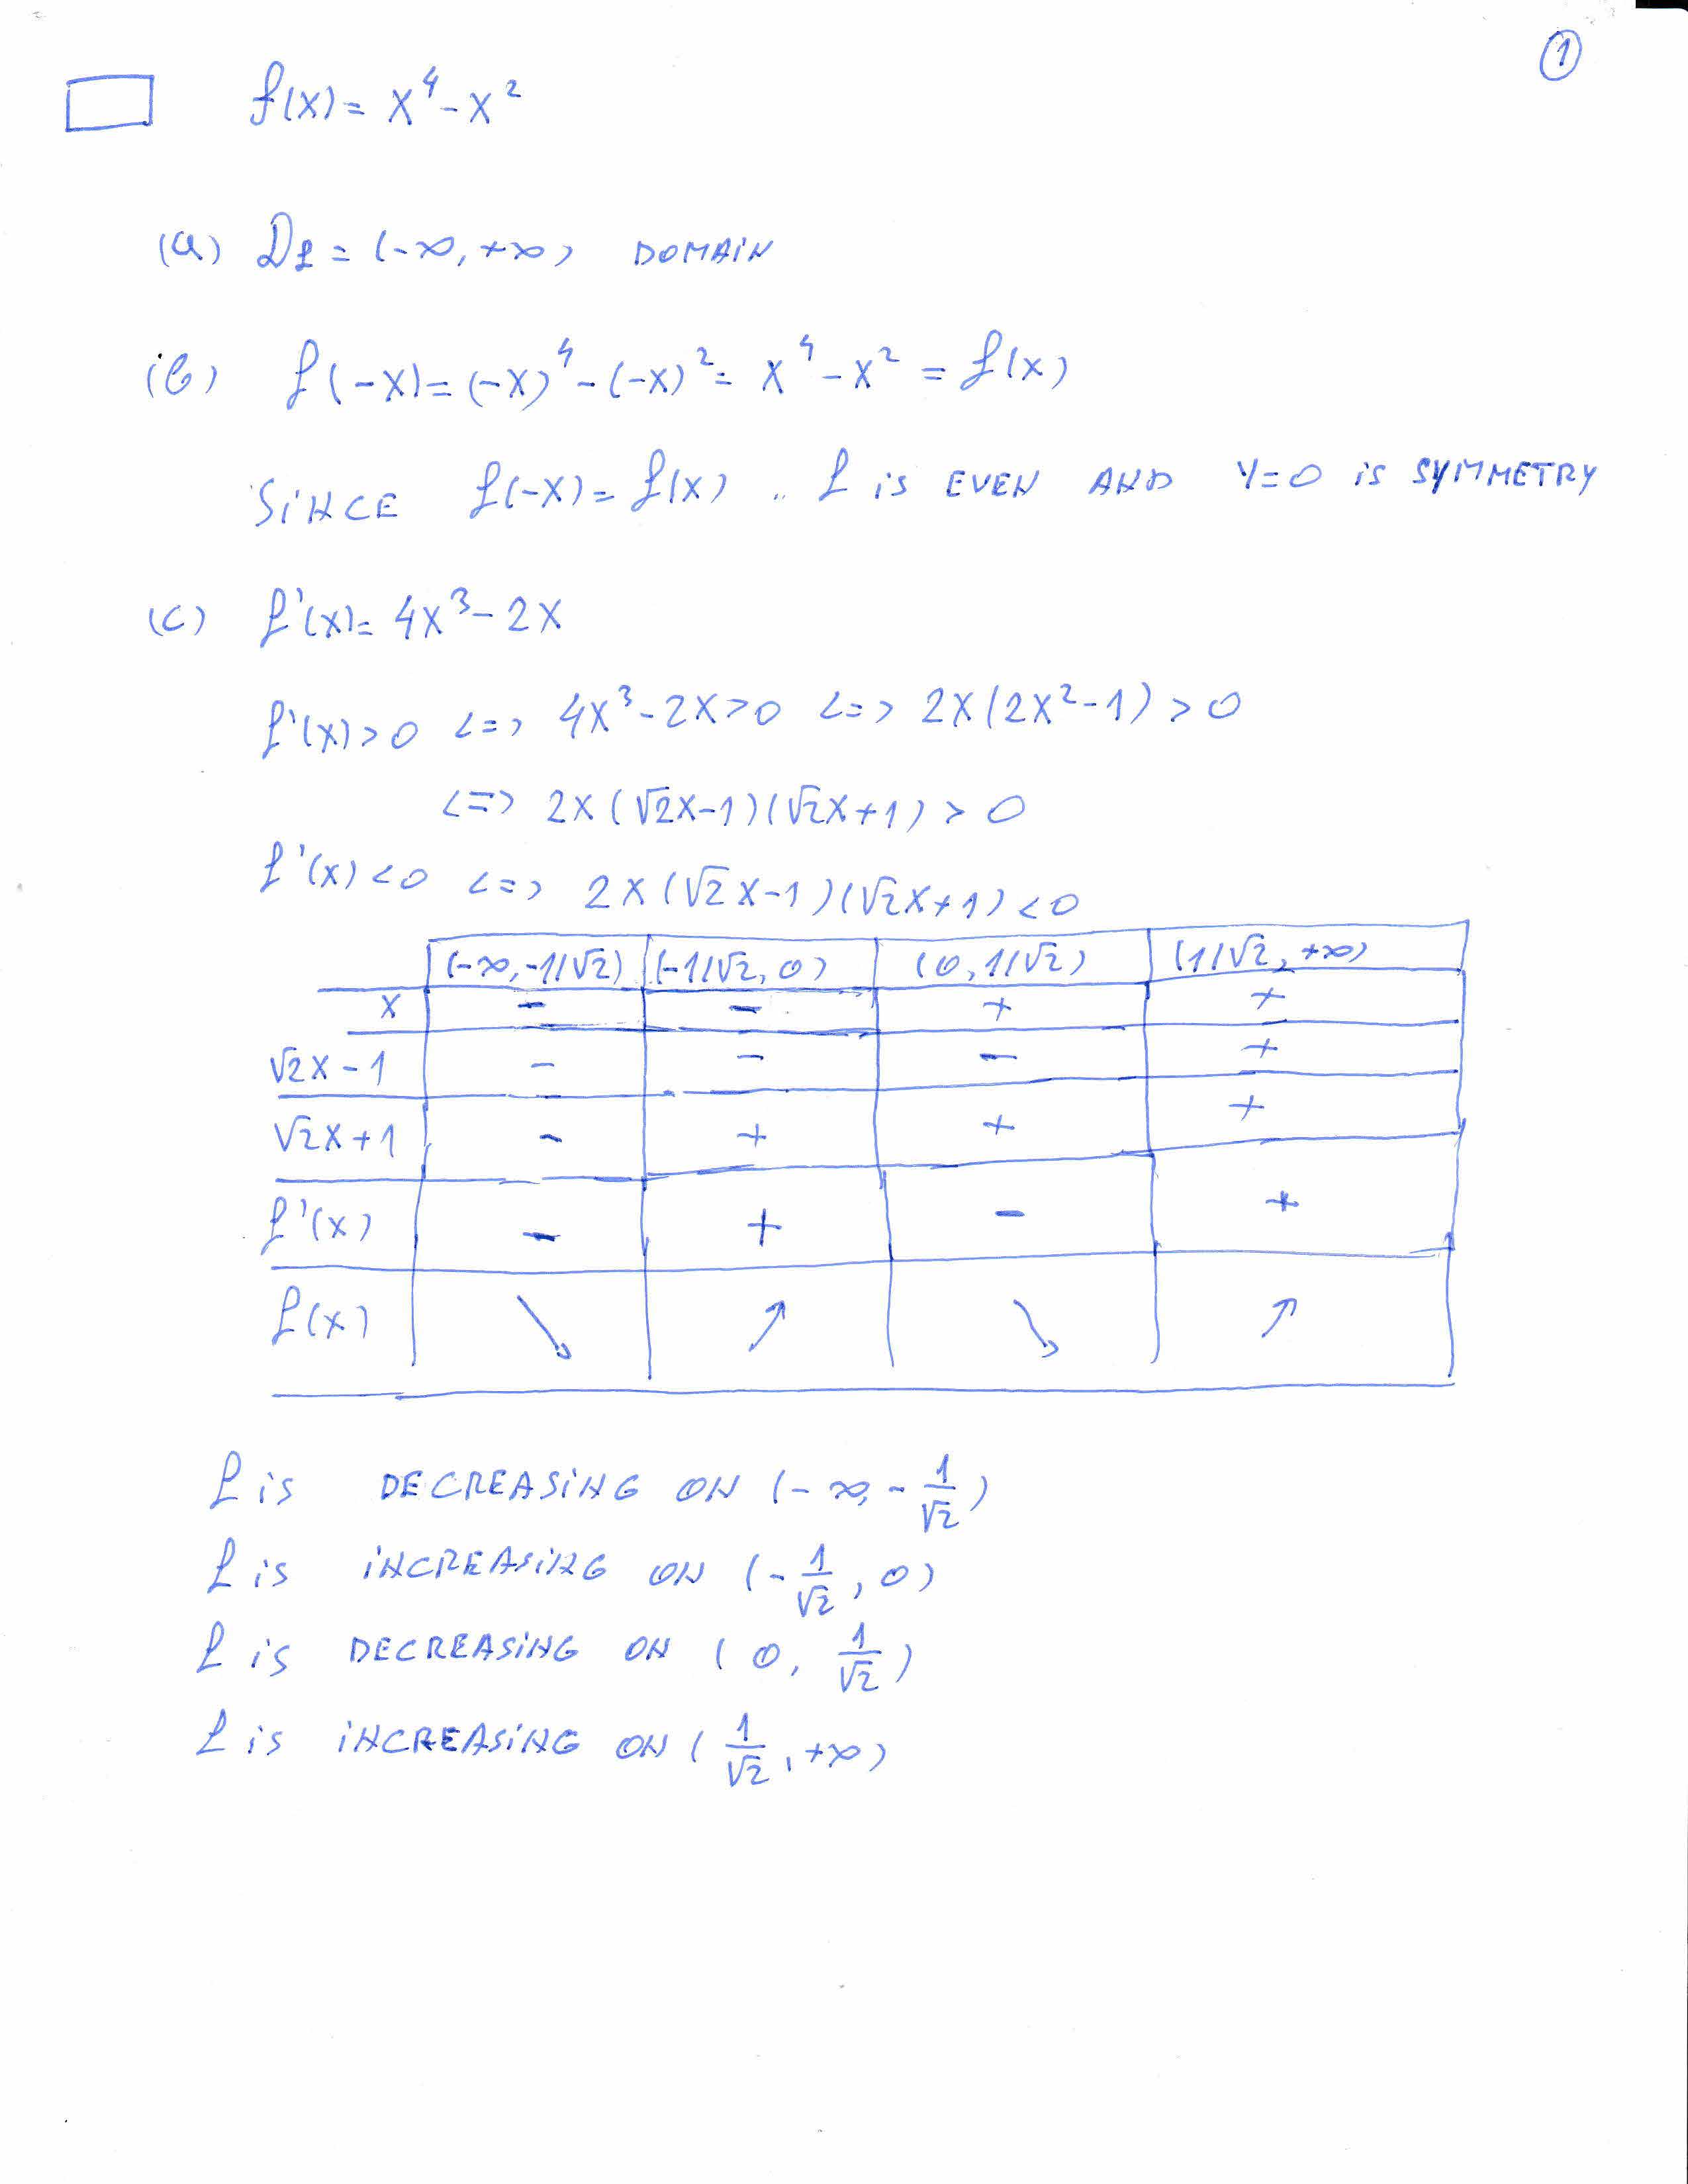 ①
f(x)= x⁴-x²
(a) Df = (-∞, +∞) DOMAIN
(b) f(-x)=(-x)⁴-(-x)²= x⁴-x² = f(x)
SINCE f(-x)= f(x) .. f is EVEN AND Y=0 is SYMMETRY
(c) f'(x)= 4x³-2x
f'(x)>0 <=> 4x³-2x>0 <=> 2x(2x²-1)>0
<=> 2x(√2x-1)(√2x+1)>0
f'(x)<0 <=> 2x(√2x-1)(√2x+1)<0
(-∞,-1/√2) (-1/√2, 0) (0, 1/√2) (1/√2, +∞)
x - - + +
√2x-1 - - - +
√2x+1 - + + +
f'(x) - + - +
f(x) ↘ ↗ ↘ ↗
f is DECREASING ON (-∞, -1/√2)
f is INCREASING ON (-1/√2, 0)
f is DECREASING ON (0, 1/√2)
f is INCREASING ON (1/√2, +∞)